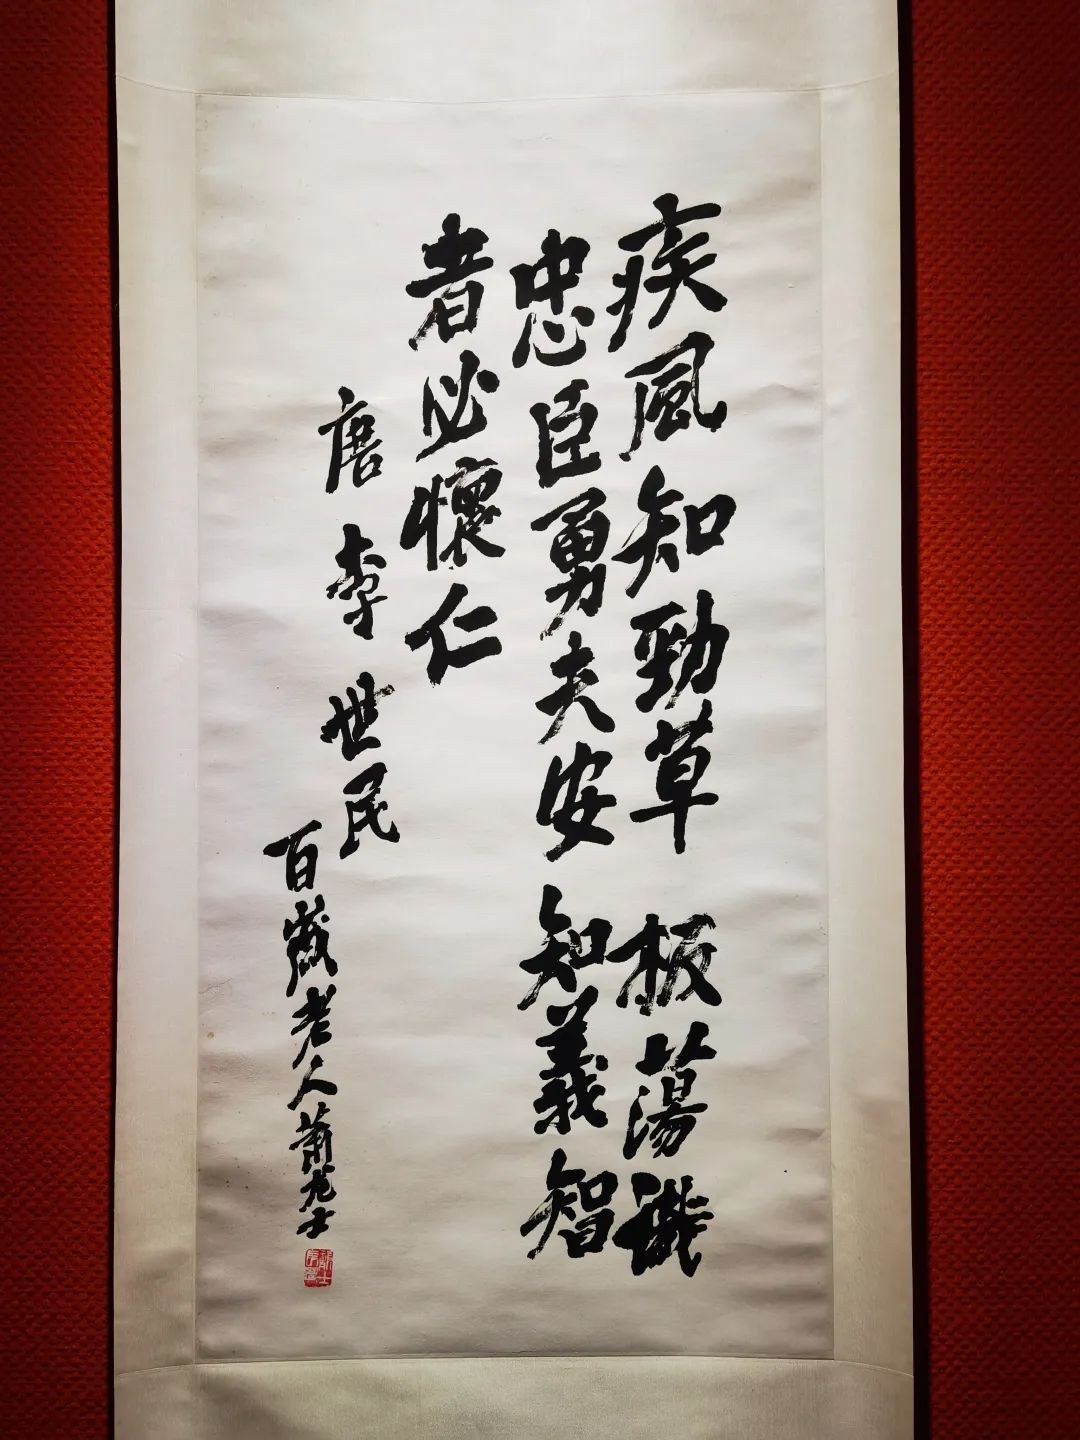 疾風知勁草 板蕩識
忠臣勇夫安 知義智
者必懷仁
唐 李世民
百歲老人蕭龙士